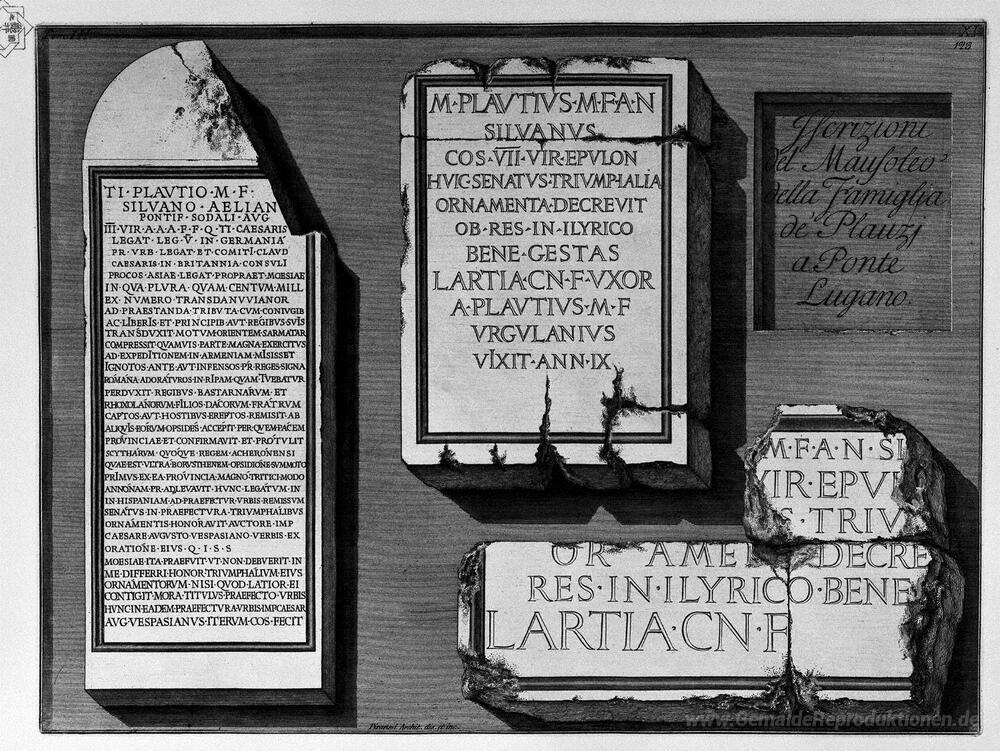 XI
128
TI·PLAVTIO·M·F·
SILVANO·AELIAN
PONTIF·SODALI·AVG
III·VIR·A·A·A·F·F·Q·TI·CAESARIS
LEGAT·LEG·V·IN·GERMANIA
PR·VRB·LEGAT·ET·COMITI·CLAVD
CAESARIS·IN·BRITANNIA·CONSVLI
PROCOS·ASIAE·LEGAT·PROPRAET·MOESIAE
IN·QVA·PLVRA·QVAM·CENTVM·MILL
EX·NVMERO·TRANSDANVVIANOR
AD·PRAESTANDA·TRIBVTA·CVM·CONIVGIB
AC·LIBERIS·ET·PRINCIPIB·AVT·REGIBVS·SVIS
TRANSDVXIT·MOTVM·ORIENTEM·SARMATAR
COMPRESSIT·QVAMVIS·PARTE·MAGNA·EXERCITVS
AD·EXPEDITIONEM·IN·ARMENIAM·MISISSET
IGNOTOS·ANTE·AVT·INFENSOS·P·R·REGES·SIGNA
ROMANA·ADORATVROS·IN·RIPAM·QVAM·TVEBATVR
PERDVXIT·REGIBVS·BASTARNARVM·ET
RHOXOLANORVM·FILIOS·DACORVM·FRATRVM
CAPTOS·AVT·HOSTIBVS·EREPTOS·REMISIT·AB
ALIQVIS·EORVM·OPSIDES·ACCEPIT·PER·QVEM·PACEM
PROVINCIAE·ET·CONFIRMAVIT·ET·PROTVLIT
SCYTHARVM·QVOQVE·REGEM·ACHERONENSI
QVAE·EST·VLTRA·BORVSTHENEM·OPSIDIONE·SVMMOTO
PRIMVS·EX·EA·PROVINCIA·MAGNO·TRITICI·MODO
ANNONAM·P·R·ADLEVAVIT·HVNC·LEGATVM·IN
IN·HISPANIAM·AD·PRAEFECTVR·VRBIS·REMISSVM
SENATVS·IN·PRAEFECTVRA·TRIVMPHALIBVS
ORNAMENTIS·HONORAVIT·AVCTORE·IMP
CAESARE·AVGVSTO·VESPASIANO·VERBIS·EX
ORATIONE·EIVS·Q·I·S·S
MOESIAE·ITA·PRAEFVIT·VT·NON·DEBVERIT·IN
ME·DIFFERRI·HONOR·TRIVMPHALIVM·EIVS
ORNAMENTORVM·NISI·QVOD·LATIOR·EI
CONTIGIT·MORA·TITVLVS·PRAEFECTO·VRBIS
HVNC·IN·EADEM·PRAEFECTVRA·VRBIS·IMP·CAESAR
AVG·VESPASIANVS·ITERVM·COS·FECIT
M·PLAVTIVS·M·F·A·N
SILVANVS
COS·VII·VIR·EPVLON
HVIC·SENATVS·TRIVMPHALIA
ORNAMENTA·DECREVIT
OB·RES·IN·ILYRICO
BENE·GESTAS
LARTIA·CN·F·VXOR
A·PLAVTIVS·M·F
VRGVLANIVS
VIXIT·ANN·IX
Iscrizioni
del Mausoleo
della Famiglia
de' Plauzj
a Ponte
Lugano
M·F·A·N·SI
VIR·EPVL
S·TRIV
OR AMEN DECRE
RES·IN·ILYRICO·BENE
LARTIA·CN·F
Piranesi Archit. dis. et inc.
www.GemaeldeReproduktionen.de